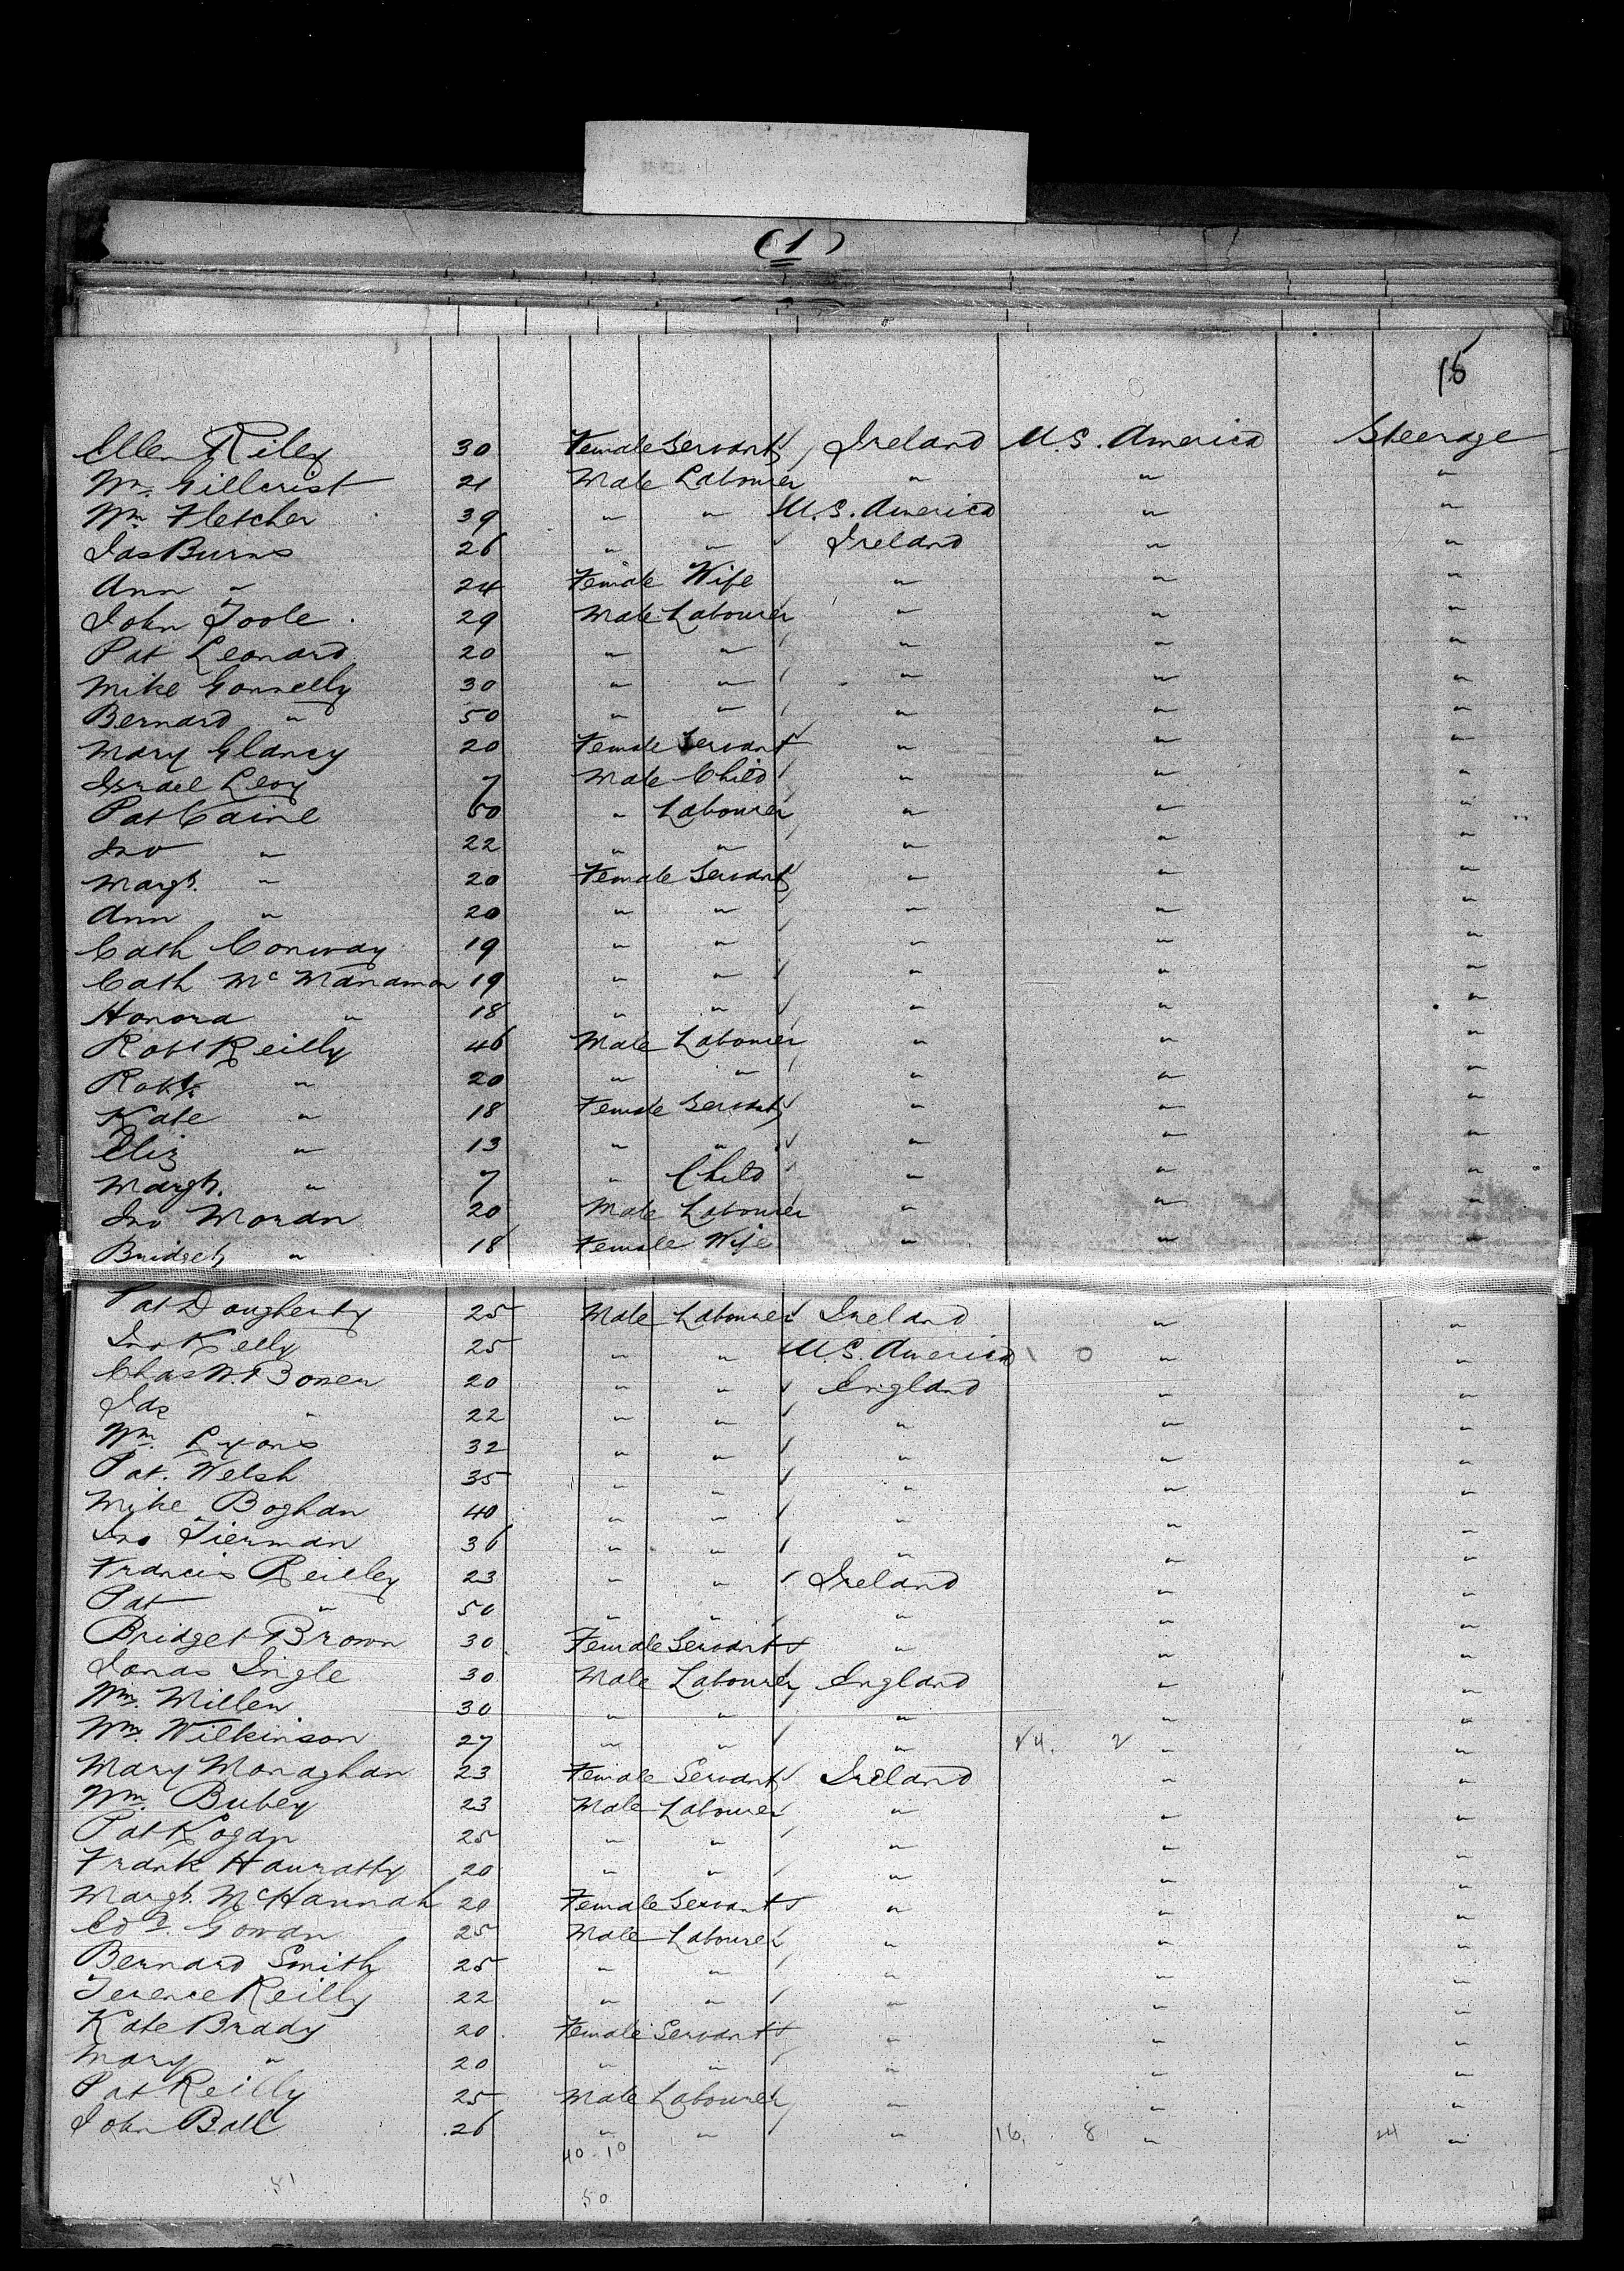 (1)
18
Ellen Riley 30 Female Servant Ireland U.S. America Steerage
Wm. Gillcrist 21 Male Labourer " " "
Wm Fletcher 39 " " U.S. America " "
Jas Burns 26 " " Ireland " "
Ann " 24 Female Wife " " "
John Toole 29 Male Labourer " " "
Pat Leonard 20 " " " " "
Mike Gonnelly 30 " " " " "
Bernard " 50 " " " " "
Mary Glancy 20 Female Servant " " "
Israel Levy 7 Male Child " " "
Pat Caine 50 " Labourer " " "
Jno " 22 " " " " "
Margt. " 20 Female Servant " " "
Ann " 20 " " " " "
Cath Conway 19 " " " " "
Cath Mc Manamon 19 " " " " "
Honora " 18 " " " " "
Robt Reilly 46 Male Labourer " " "
Robt. " 20 " " " " "
Kate " 18 Female Servant " " "
Eliz " 13 " " " " "
Margt. " 7 " Child " " "
Jno Moran 20 Male Labourer " " "
Bridget " 18 Female Wife " " "
Pat Dougherty 25 Male Labourer Ireland " "
Jno Kelly 25 " " U.S. America 0 " "
Chas W. Bower 20 " " England " "
Jas " 22 " " " " "
Wm. Lyons 32 " " " " "
Pat. Welsh 35 " " " " "
Mike Boghan 40 " " " " "
Jno Tierman 36 " " " " "
Francis Reilley 23 " " Ireland " "
Pat " 50 " " " " "
Bridget Brown 30 Female Servant " " "
Jonas Ingle 30 Male Labourer England " "
Wm. Millen 30 " " " " "
Wm. Wilkinson 27 " " " 2 " "
Mary Monaghan 23 Female Servant Ireland " "
Wm. Bubey 23 Male Labourer " " "
Pat Kogan 25 " " " " "
Frank Hauratty 20 " " " " "
Margt. McHannah 20 Female Servant " " "
Edd. Gowan 25 Male Labourer " " "
Bernard Smith 25 " " " " "
Terence Reilly 22 " " " " "
Kate Brady 20 Female Servant " " "
Mary " 20 " " " " "
Pat Reilly 25 Male Labourer " " "
John Ball 26 " " " 16. 8 " 24 "
40.10
51
50